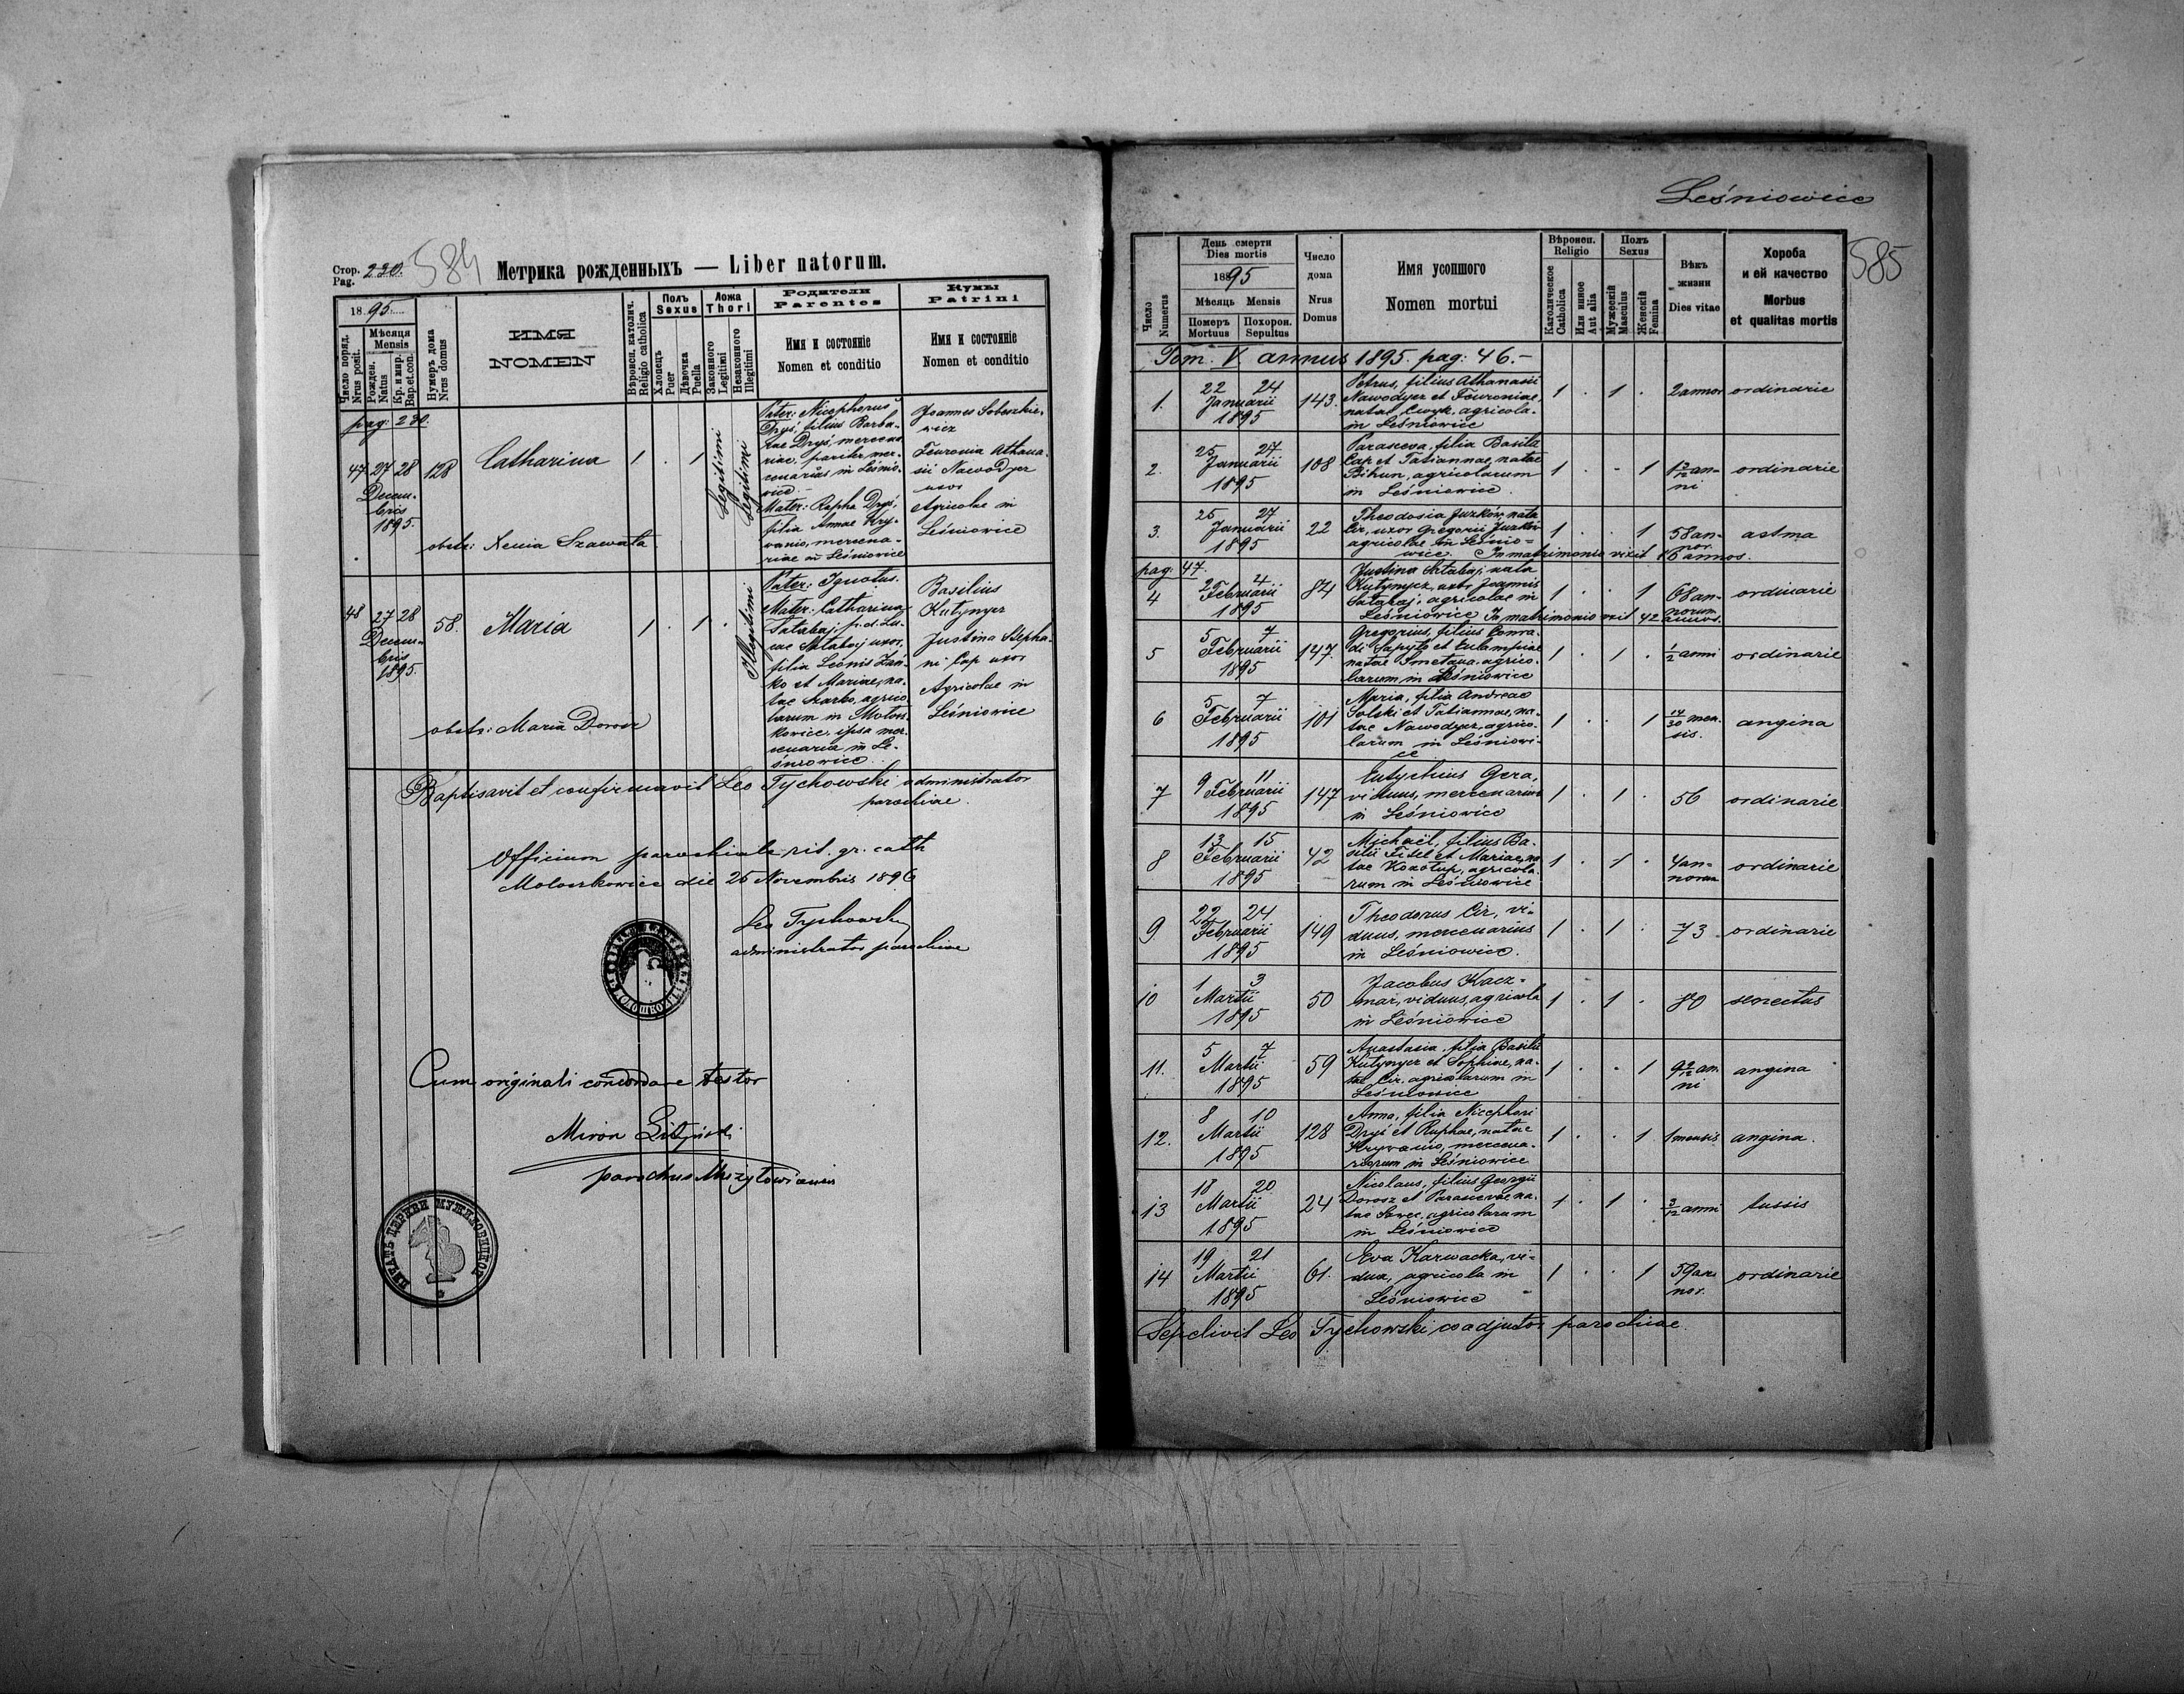 Стор. 230. 584 Метрика рожденныхъ — Liber natorum.
Pag.
1895.
Число поряд.
Nrus posit.
Мѣсяця
Mensis
Рожден.
Natus
Кр. и мир.
Bap. et con.
Нумеръ дома
Nrus domus
ИМЯ
NOMEN
Вѣроисп. католич.
Religio catholica
Полъ
Sexus
Хлопець
Puer
Дѣвочка
Puella
Ложа
Thori
Законного
Legitimi
Незаконного
Illegitimi
Родители
Parentes
Имя и состоянiе
Nomen et conditio
Кумы
Patrini
Имя и состоянiе
Nomen et conditio
pag: 230.
47 27 28 128
Decem-
bris
1895.
Catharina
1 . 1
Legitimi
Legitimi
Pater: Nicephorus
Dryś, filius Barba-
rae Dryś, mercena
riae, pariter mer-
cenarius in Leśnio-
wice
Mater: Rapha Dryś,
filia Annae Kry-
wanio, mercena-
riae in Leśniowice
Joannes Sobeszkie-
wicz
Fevronia Athana-
sii Nawodyer
uxor
Agricolae in
Leśniowice
obstr: Xenia Szawala
48 27 28 58.
Decem-
bris
1895.
Maria
1 . 1 .
Illegitimi
Pater: Ignotus.
Mater: Catharina
Satabaj, p. d. Lu-
cae Satabaj uxor,
filia Leonis Zań-
ko et Mariae, na-
tae Szarko, agrico
larum in Motosz-
kowice, ipsa mer-
cenaria in Le-
śniowice
Basilius
Kutynyez
Justina Stepha-
ni Cap uxor
Agricolae in
Leśniowice
obstr: Maria Dorosz
Baptisavit et confirmavit Leo Tychowski administrator
parochiae.
Officium parochiale rit. gr. cath
Moloszkowice die 25 Novembris 1896
Leo Tychowski
administrator parochiae
Cum originali concordare testor
Miron
parochus
ПЕЧАТЬ ЦЕРКВИ МУЖИЛОВИЦКОЙ
Leśniowice
585
Число
Numerus
День смерти
Dies mortis
1895
Мѣсяць Mensis
Померъ
Mortuus
Похорон.
Sepultus
Число
дома
Nrus
Domus
Имя усопшого
Nomen mortui
Вѣроисп.
Religio
Католическое
Catholica
Или иное
Aut alia
Полъ
Sexus
Мужескiй
Masculus
Женскiй
Femina
Вѣкъ
жизни
Dies vitae
Хороба
и ей качество
Morbus
et qualitas mortis
Tom. V. annus 1895. pag: 46.-
1. 22 24
Januarii
1895
143.
Petrus, filius Athanasii
Nawodyez et Fevroniae,
natae Cwyk, agricola-
in Leśniowice
1 . 1 . 2 annor ordinarie
2. 25 27
Januarii
1895
108
Parasceva, filia Basilii
Cap et Tatiannae, natae
Bihun, agricolarum
in Leśniowice.
1 . . 1 an-
ni
ordinarie
3. 25 27
Januarii
1895
22
Theodosia Juzków, nata
Cir, uxor Gregorii Juzków
agricolae in Leśnio-
wice. In matrimonio vixit 16 annos.
1 . . 1 58 an-
nor.
astma
pag: 47.
4 2 4
Februarii
1895
84
Justina Sztabaj, nata
Kutynyez, uxor Joannis
Satabaj, agricolae in
Leśniowice In matrimonio vixit 42 annos.
1 . . 1 68 an-
norum
ordinarie
5 5 7
Februarii
1895
147.
Gregorius, filius Conra-
di Sapyto et Eulampiae
natae Smetana, agrico-
larum in Leśniowice
1 . 1 . 1/2 anni ordinarie
6 5 7
Februarii
1895
101
Maria, filia Andreae
Solski et Tatiannae, na-
tae Nawodyez, agrico-
larum in Leśniowi-
ce
1 . . 1 14/30 men-
sis.
angina
7 9 11
Februarii
1895
147
Eutychius Gera,
viduus, mercenarius
in Leśniowice
1 . 1 . 56 ordinarie
8 13 15
Februarii
1895
42
Michaël, filius Ba-
silii Fitel et Mariae, na
tae Kozołup, agricola-
rum in Leśniowice
1 . 1 . 4 an-
norum
ordinarie
9. 22 24
Februarii
1895
149
Theodorus Cir, vi-
duus, mercenarius
in Leśniowice.
1 . 1 . 73 ordinarie
10 1 3
Martii
1895
50
Jacobus Kacz-
mar, viduus, agricola
in Leśniowice
1 . 1 . 80 senectus
11. 5 7
Martii
1895
59
Anastasia, filia Basilii
Kutynyez et Sophiae, na-
tae Cir, agricolarum in
Leśniowice
1 . . 1 9 9/12 an-
ni
angina
12. 8 10
Martii
1895
128
Anna, filia Nicephori
Dryś et Raphae, natae
Krywanio, mercena-
riorum in Leśniowice
1 . . 1 1 mensis angina.
13 18 20
Martii
1895
24
Nicolaus, filius Georgii
Dorosz et Parascevae na-
tae Szwec, agricolarum
in Leśniowice
1 . 1 . 3/12 anni tussis
14 19 21
Martii
1895
61.
Eva Karwacka, vi-
dua, agricola in
Leśniowice
1 . . 1 59 an-
nor.
ordinarie
Sepelivit Leo Tychowski coadjutor parochiae.